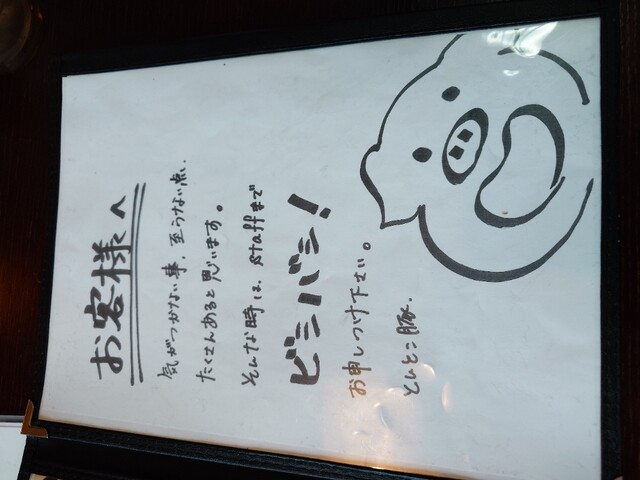 お客様へ
気がつかない事、至らない点、
たくさんあると思います。
そんな時は、staffまで
ビシバシ！
お申しつけ下さい。
とんとこ豚.